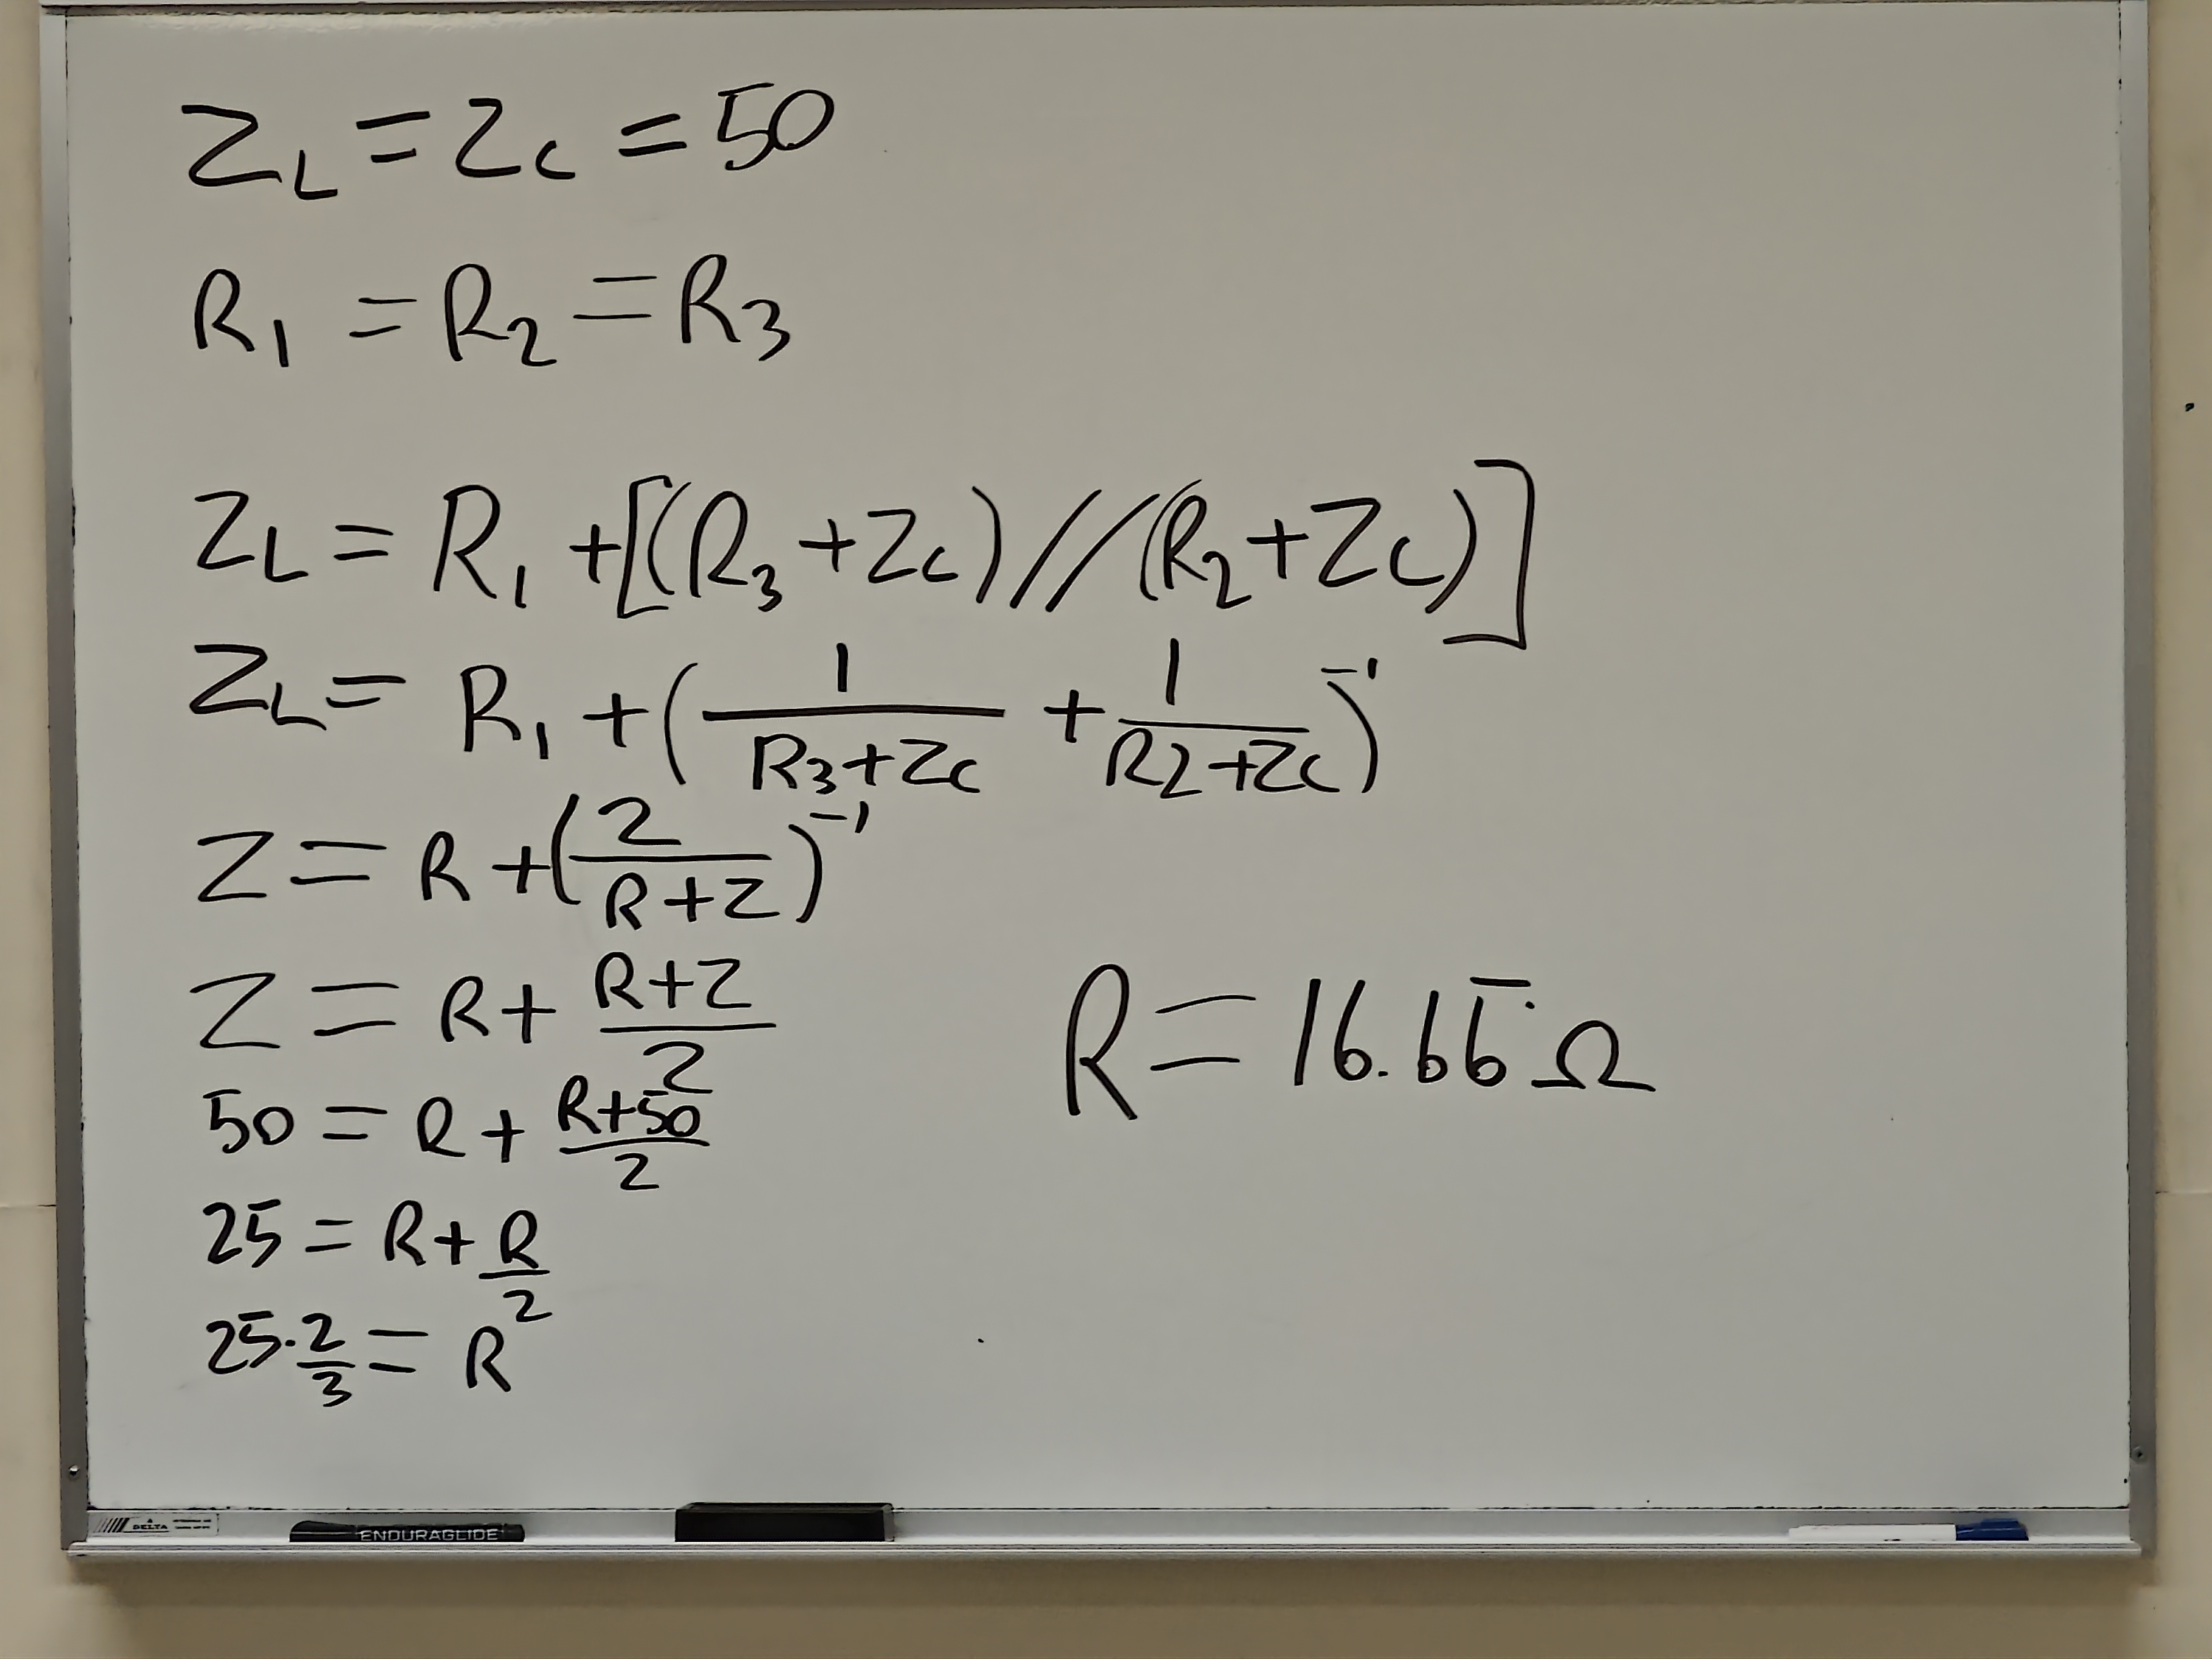 Z_L = Z_C = 50
R_1 = R_2 = R_3
Z_L = R_1 + [(R_3 + Z_C) // (R_2 + Z_C)]
Z_L = R_1 + (1/(R_3 + Z_C) + 1/(R_2 + Z_C))^-1
Z = R + (2/(R + Z))^-1
Z = R + (R + Z)/2
R = 16.66̅ Ω
50 = R + (R + 50)/2
25 = R + R/2
25 · 2/3 = R
DELTA
ENDURAGLIDE